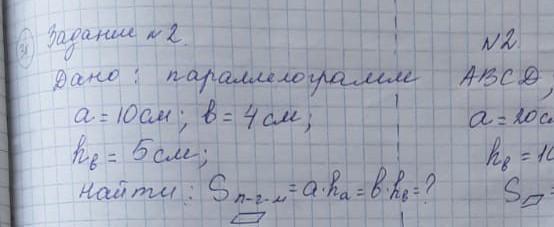 Задание №2.
Дано: параллелограмм ABCD,
a = 10см; b = 4см;
h_b = 5см;
найти: S_п-г-м = a·h_a = b·h_b = ?
№2
a = 20с
h_b = 10
S▱ =